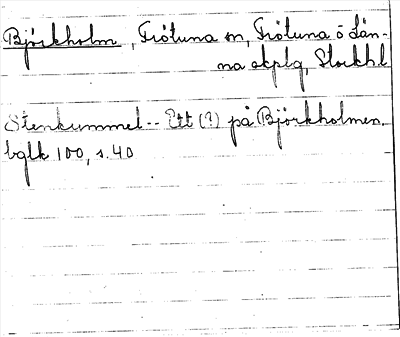 Björkholm, Frötuna sn, Frötuna o Län-
na skplg, Stockhl
Stenkummel -- Ett (?) på Björkholmen.
bglk 100, s. 40